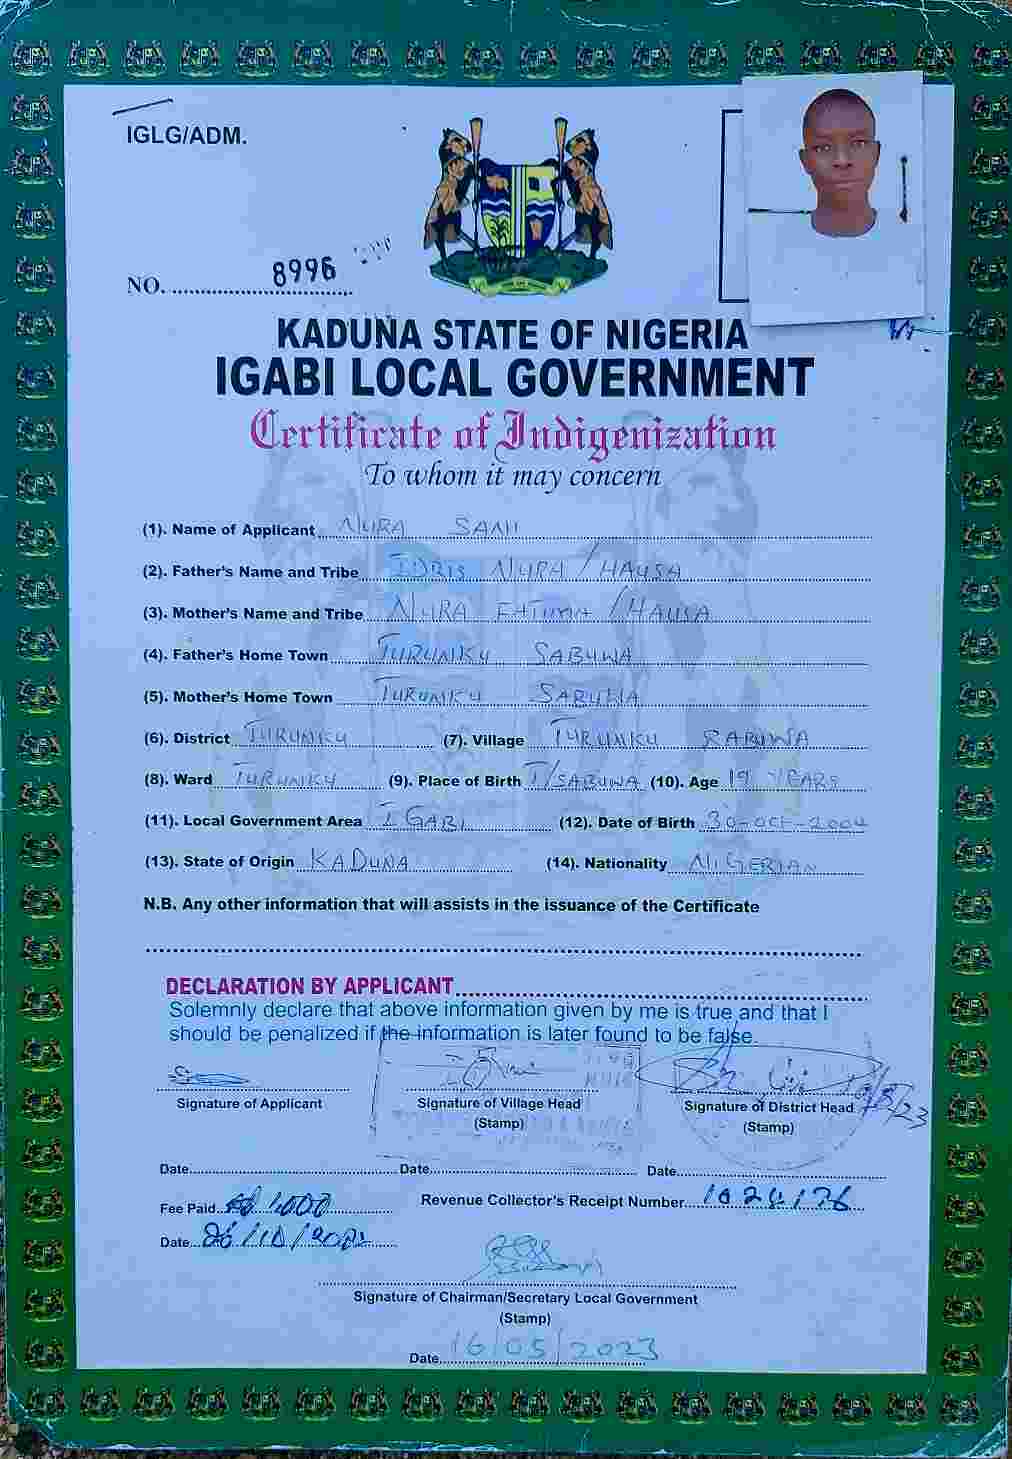 IGLG/ADM.
NO. 8996
KADUNA STATE OF NIGERIA
IGABI LOCAL GOVERNMENT
Certificate of Indigenization
To whom it may concern
(1). Name of Applicant NURA SANI
(2). Father's Name and Tribe IDRIS NURA / HAUSA
(3). Mother's Name and Tribe NURA FATIMA / HAUSA
(4). Father's Home Town TURUNKU SABUWA
(5). Mother's Home Town TURUNKU SABUWA
(6). District TURUNKU (7). Village TURUNKU SABUWA
(8). Ward TURUNKU (9). Place of Birth T/SABUWA (10). Age 19 YEARS
(11). Local Government Area IGABI (12). Date of Birth 30-OCT-2004
(13). State of Origin KADUNA (14). Nationality NIGERIAN
N.B. Any other information that will assists in the issuance of the Certificate
DECLARATION BY APPLICANT
Solemnly declare that above information given by me is true and that I
should be penalized if the information is later found to be false.
Signature of Applicant Signature of Village Head Signature of District Head
(Stamp) (Stamp)
Date Date Date
Fee Paid 1,000 Revenue Collector's Receipt Number 1024176
Date
Signature of Chairman/Secretary Local Government
(Stamp)
Date 16/05/2023